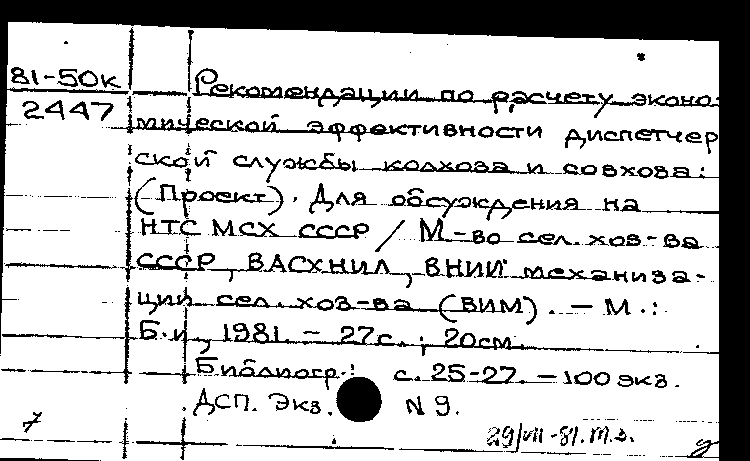 81-50к
2447
Рекомендации по расчету эконо-
мической эффективности диспетчер
ской службы колхоза и совхоза:
(Проект). Для обсуждения на
НТС МСХ СССР / М-во сел. хоз-ва
СССР, ВАСХНИЛ, ВНИИ механиза-
ции сел. хоз-ва (ВИМ). — М.:
Б.и., 1981. – 27с.; 20см.
Библиогр.: с. 25-27. – 100 экз.
ДСП. Экз. N 9.
7
29/VII-81.